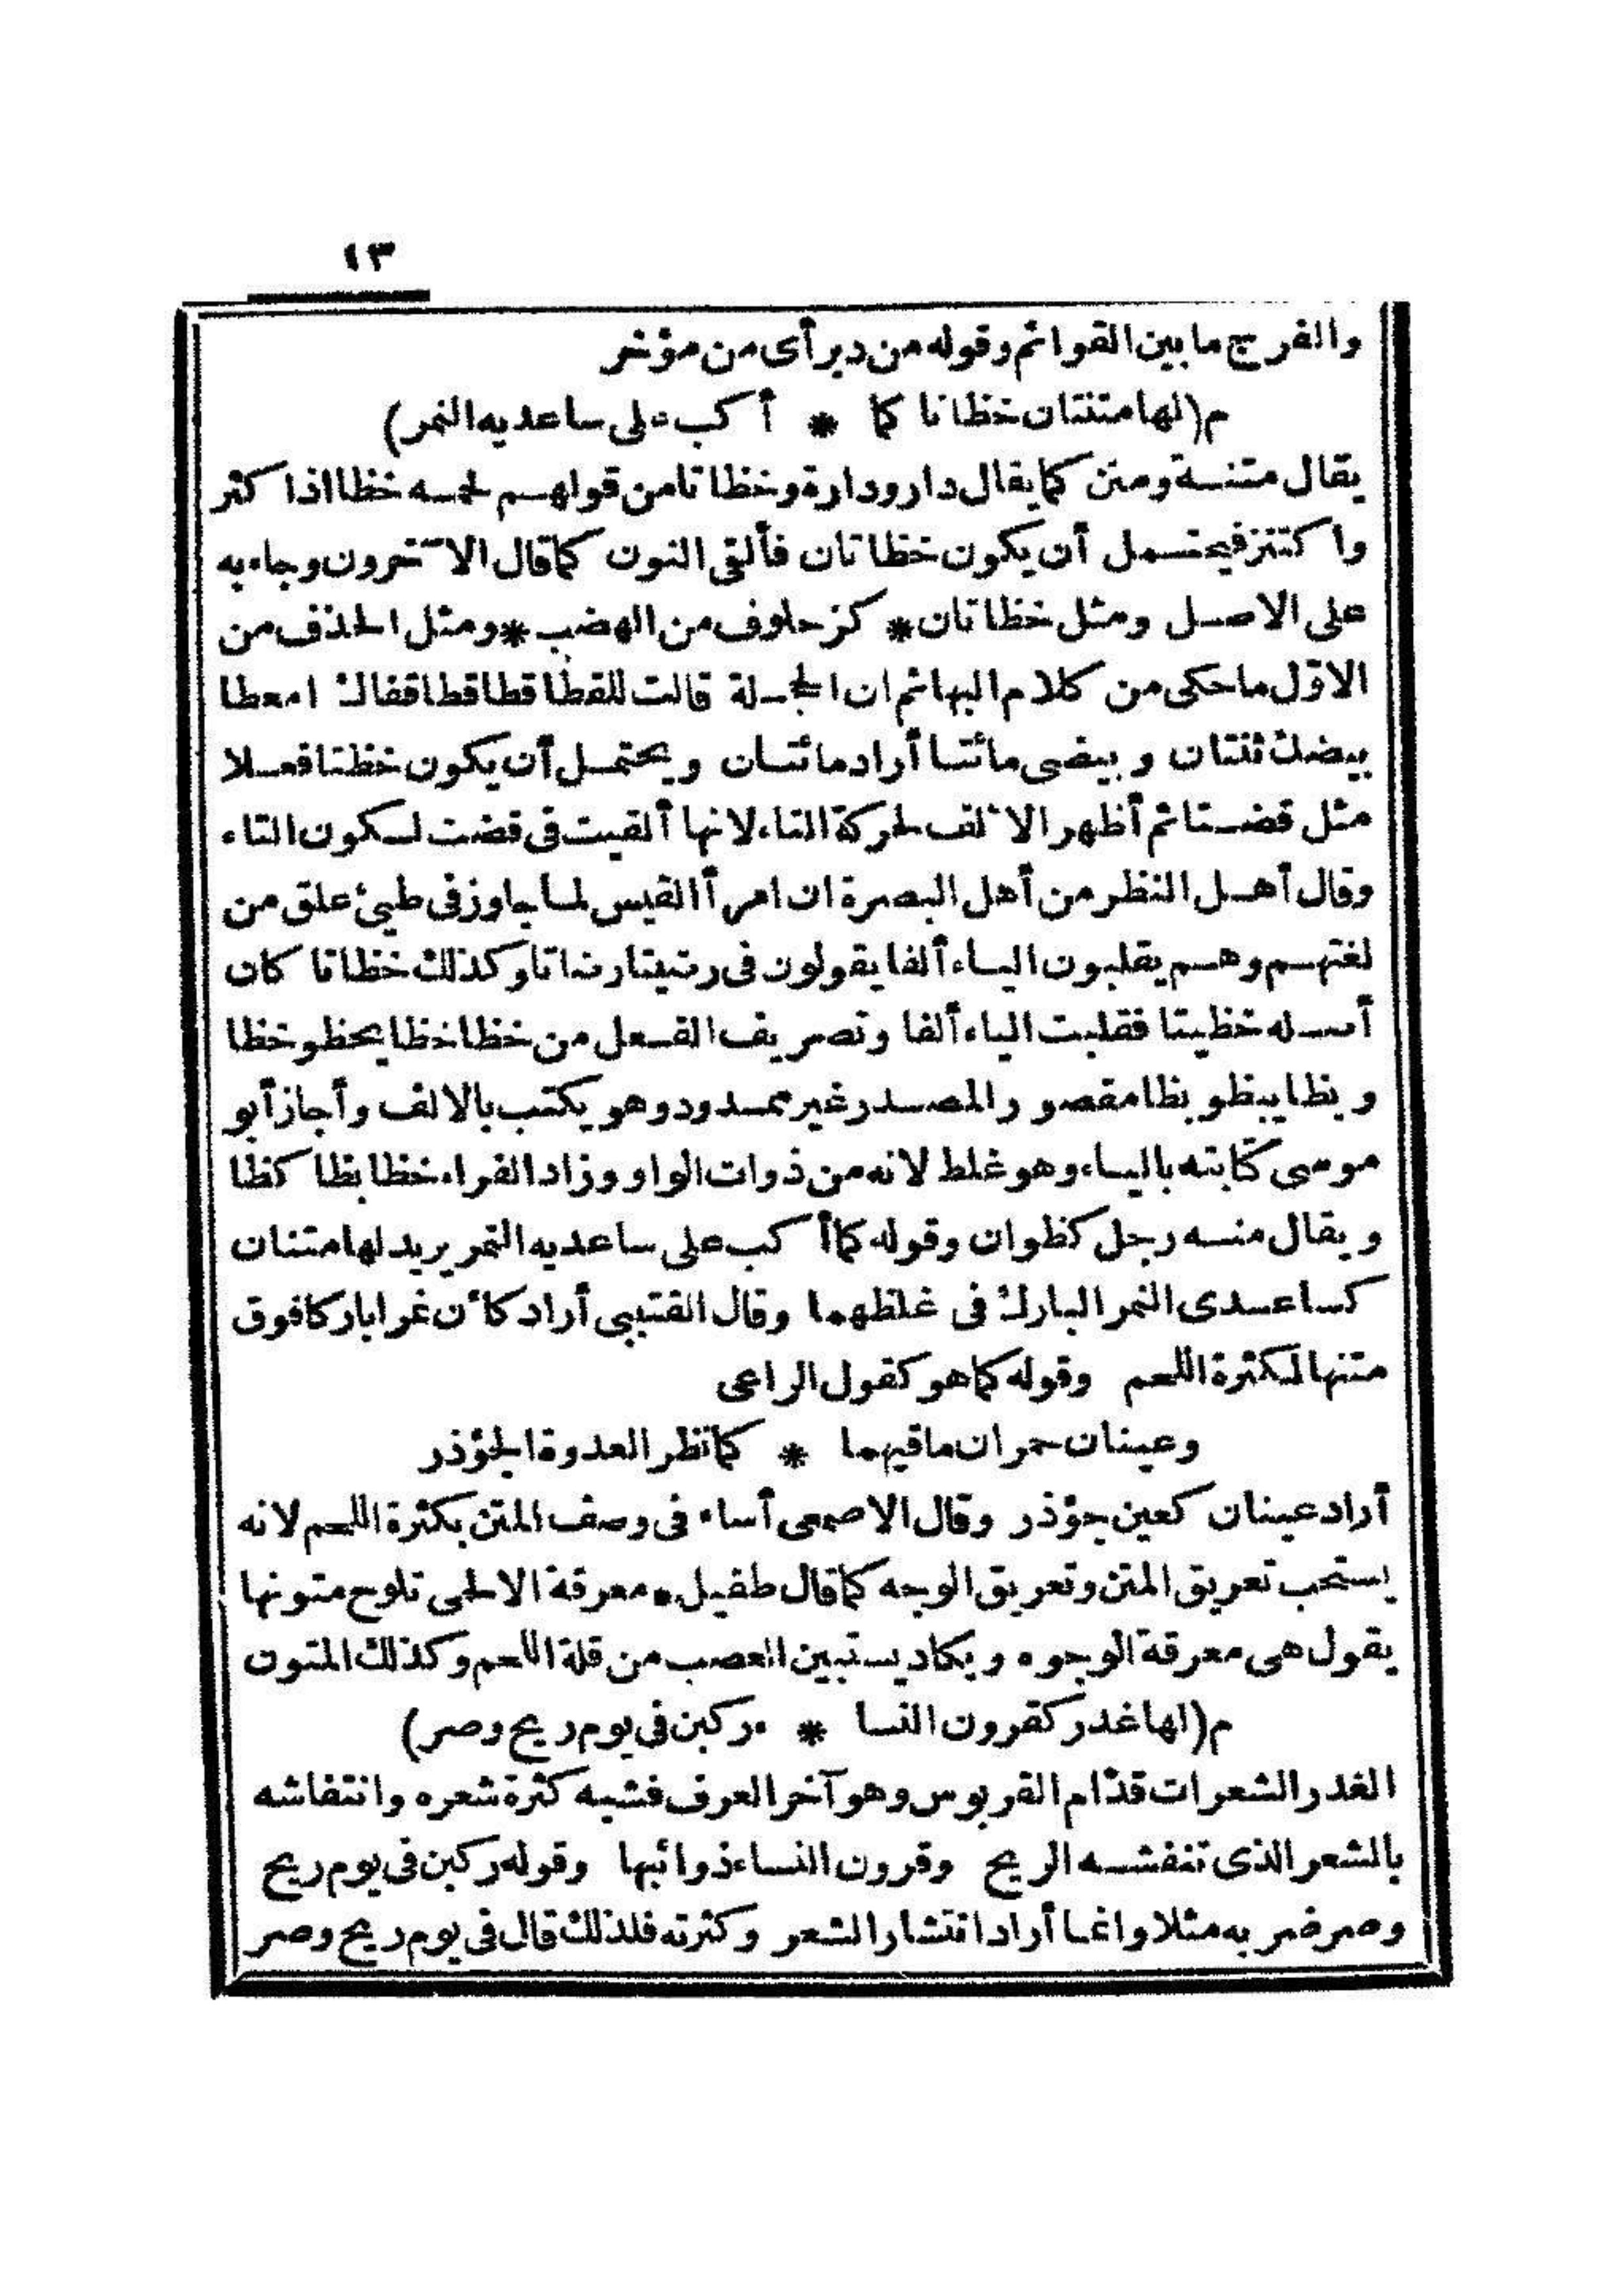 ١٣
والفرج ما بين القوائم وقوله من دبر أى من مؤخر
م(لها متنتان خظاتا كما * أكب على ساعديه النمر)
يقال متنة ومتن كما يقال دار ودارة وخظاتا من قولهم لحمه خظا اذا كثر
واكتنز فيحتمل أن يكون خظاتان فألقى النون كما قال الآخرون وجاء به
على الاصل ومثل خظاتان * كزحلوف من الهضب * ومثل الحذف من
الاوّل ما حكى من كلام البهائم ان الحجلة قالت للقطا قطا قطا قفاك امعطا
بيضك ثنتان وبيضى مائتا أراد مائتان ويحتمل أن يكون خظتا فعلا
مثل قضتا ثم أظهر الالف لحركة التاء لانها ألقيت فى قضت لسكون التاء
وقال أهل النظر من أهل البصرة ان امرأ القيس لما جاوز فى طيئ علق من
لغتهم وهم يقلبون الياء ألفا يقولون فى رضيتا رضاتا وكذلك خظاتا كان
أصله خظيتا فقلبت الياء ألفا وتصريف الفعل من خظا خظا يخظو خظا
وبظا يبظو بظا مقصور والمصدر غير ممدود وهو يكتب بالالف وأجاز أبو
موسى كتابته بالياء وهو غلط لانه من ذوات الواو وزاد الفراء خظا بظا كظا
ويقال منه رجل كظوان وقوله كما أكب على ساعديه النمر يريد لها متنان
كساعدى النمر البارك فى غلظهما وقال القتيبى أراد كأن نمرا باركا فوق
متنها لكثرة اللحم وقوله كما هو كقول الراعى
وعينان حمران ماقيهما * كما نظر العدوة الجؤذر
أراد عينان كعين جؤذر وقال الاصمعى أساء فى وصف المتن بكثرة اللحم لانه
يستحب تعريق المتن وتعريق الوجه كما قال طفيل * معرقة الالحى تلوح متونها
يقول هى معرقة الوجوه ويكاد يستبين العصب من قلة اللحم وكذلك المتون
م(لها غدر كقرون النسا * ء ركبن فى يوم ريح وصر)
الغدر الشعرات قدّام القربوس وهو آخر العرف فشبه كثرة شعره وانتفاشه
بالشعر الذى تنفشه الريح وقرون النساء ذوائبها وقوله ركبن فى يوم ريح
وصر ضربه مثلا وانما أراد انتشار الشعر وكثرته فلذلك قال فى يوم ريح وصر